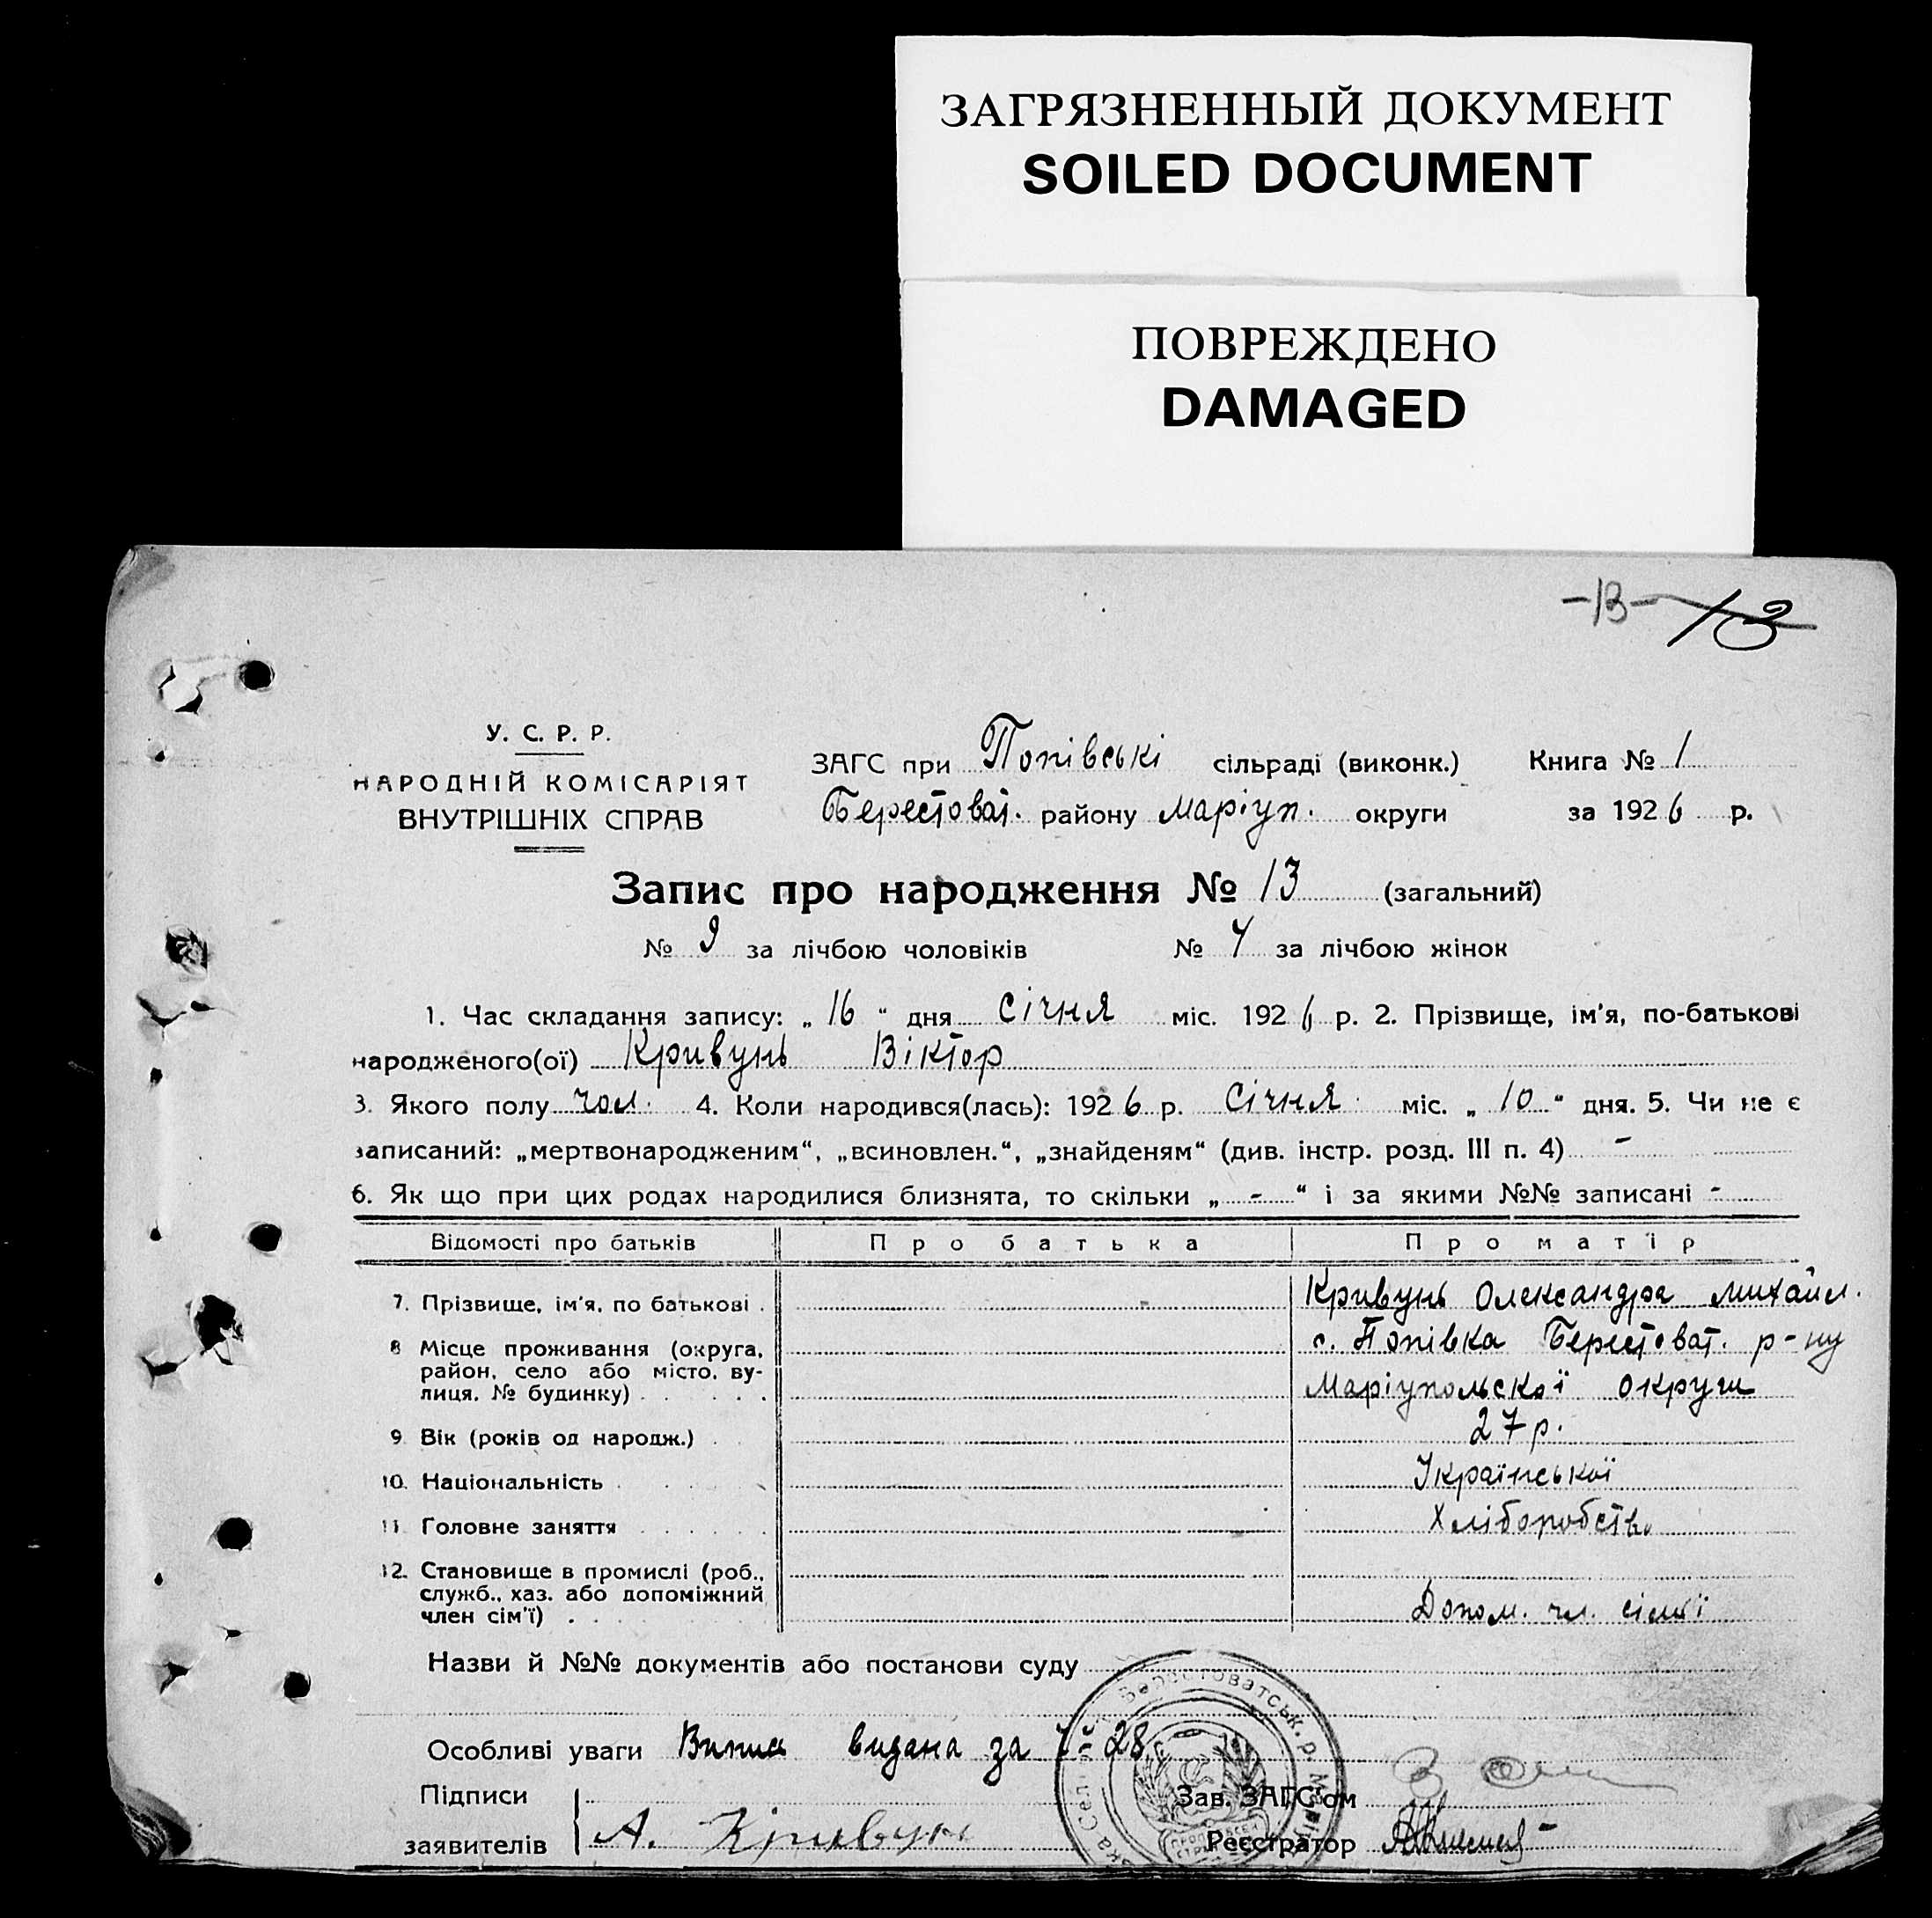 ЗАГРЯЗНЕННЫЙ ДОКУМЕНТ
SOILED DOCUMENT
ПОВРЕЖДЕНО
DAMAGED
-13- 13
У. С. Р. Р.
НАРОДНІЙ КОМІСАРІЯТ
ВНУТРІШНІХ СПРАВ
ЗАГС при Попівські сільраді (виконк.) Книга № 1
Берестоват. району Маріуп. округи за 1926 р.
Запис про народження № 13 (загальний)
№ 9 за лічбою чоловіків № 4 за лічбою жінок
1. Час складання запису: „ 16 “ дня Січня міс. 1926 р. 2. Прізвище, ім'я, по-батькові
народженого(ої) Кривунь Віктор
3. Якого полу чол. 4. Коли народився(лась): 1926 р. Січня міс. „ 10 “ дня. 5. Чи не є
записаний: „мертвонародженим“, „всиновлен.“, „знайденям“ (див. інстр. розд. III п. 4) -
6. Як що при цих родах народилися близнята, то скільки „ - “ і за якими №№ записані -
Відомості про батьків Про батька Про матір
7. Прізвище, ім'я, по батькові . Кривунь Олександра Михайл.
8 Місце проживання (округа, с. Попівка Берестоват. р-ну
район, село або місто, ву-
лиця, № будинку) . . . . . Маріупольскої округи
9. Вік (років од народж.) . . 27 р.
10. Національність . . . . Української
11. Головне заняття . . . . . Хліборобство
12. Становище в промислі (роб.,
служб., хаз. або допоміжний
член сім'ї) . . . . . Допом. чл. сімї
Назви й №№ документів або постанови суду
Берестоватськ. р. М
Особливі уваги Випис видана за № 28
Підписи Зав. ЗАГС'ом
заявителів А. Кривун Реєстратор